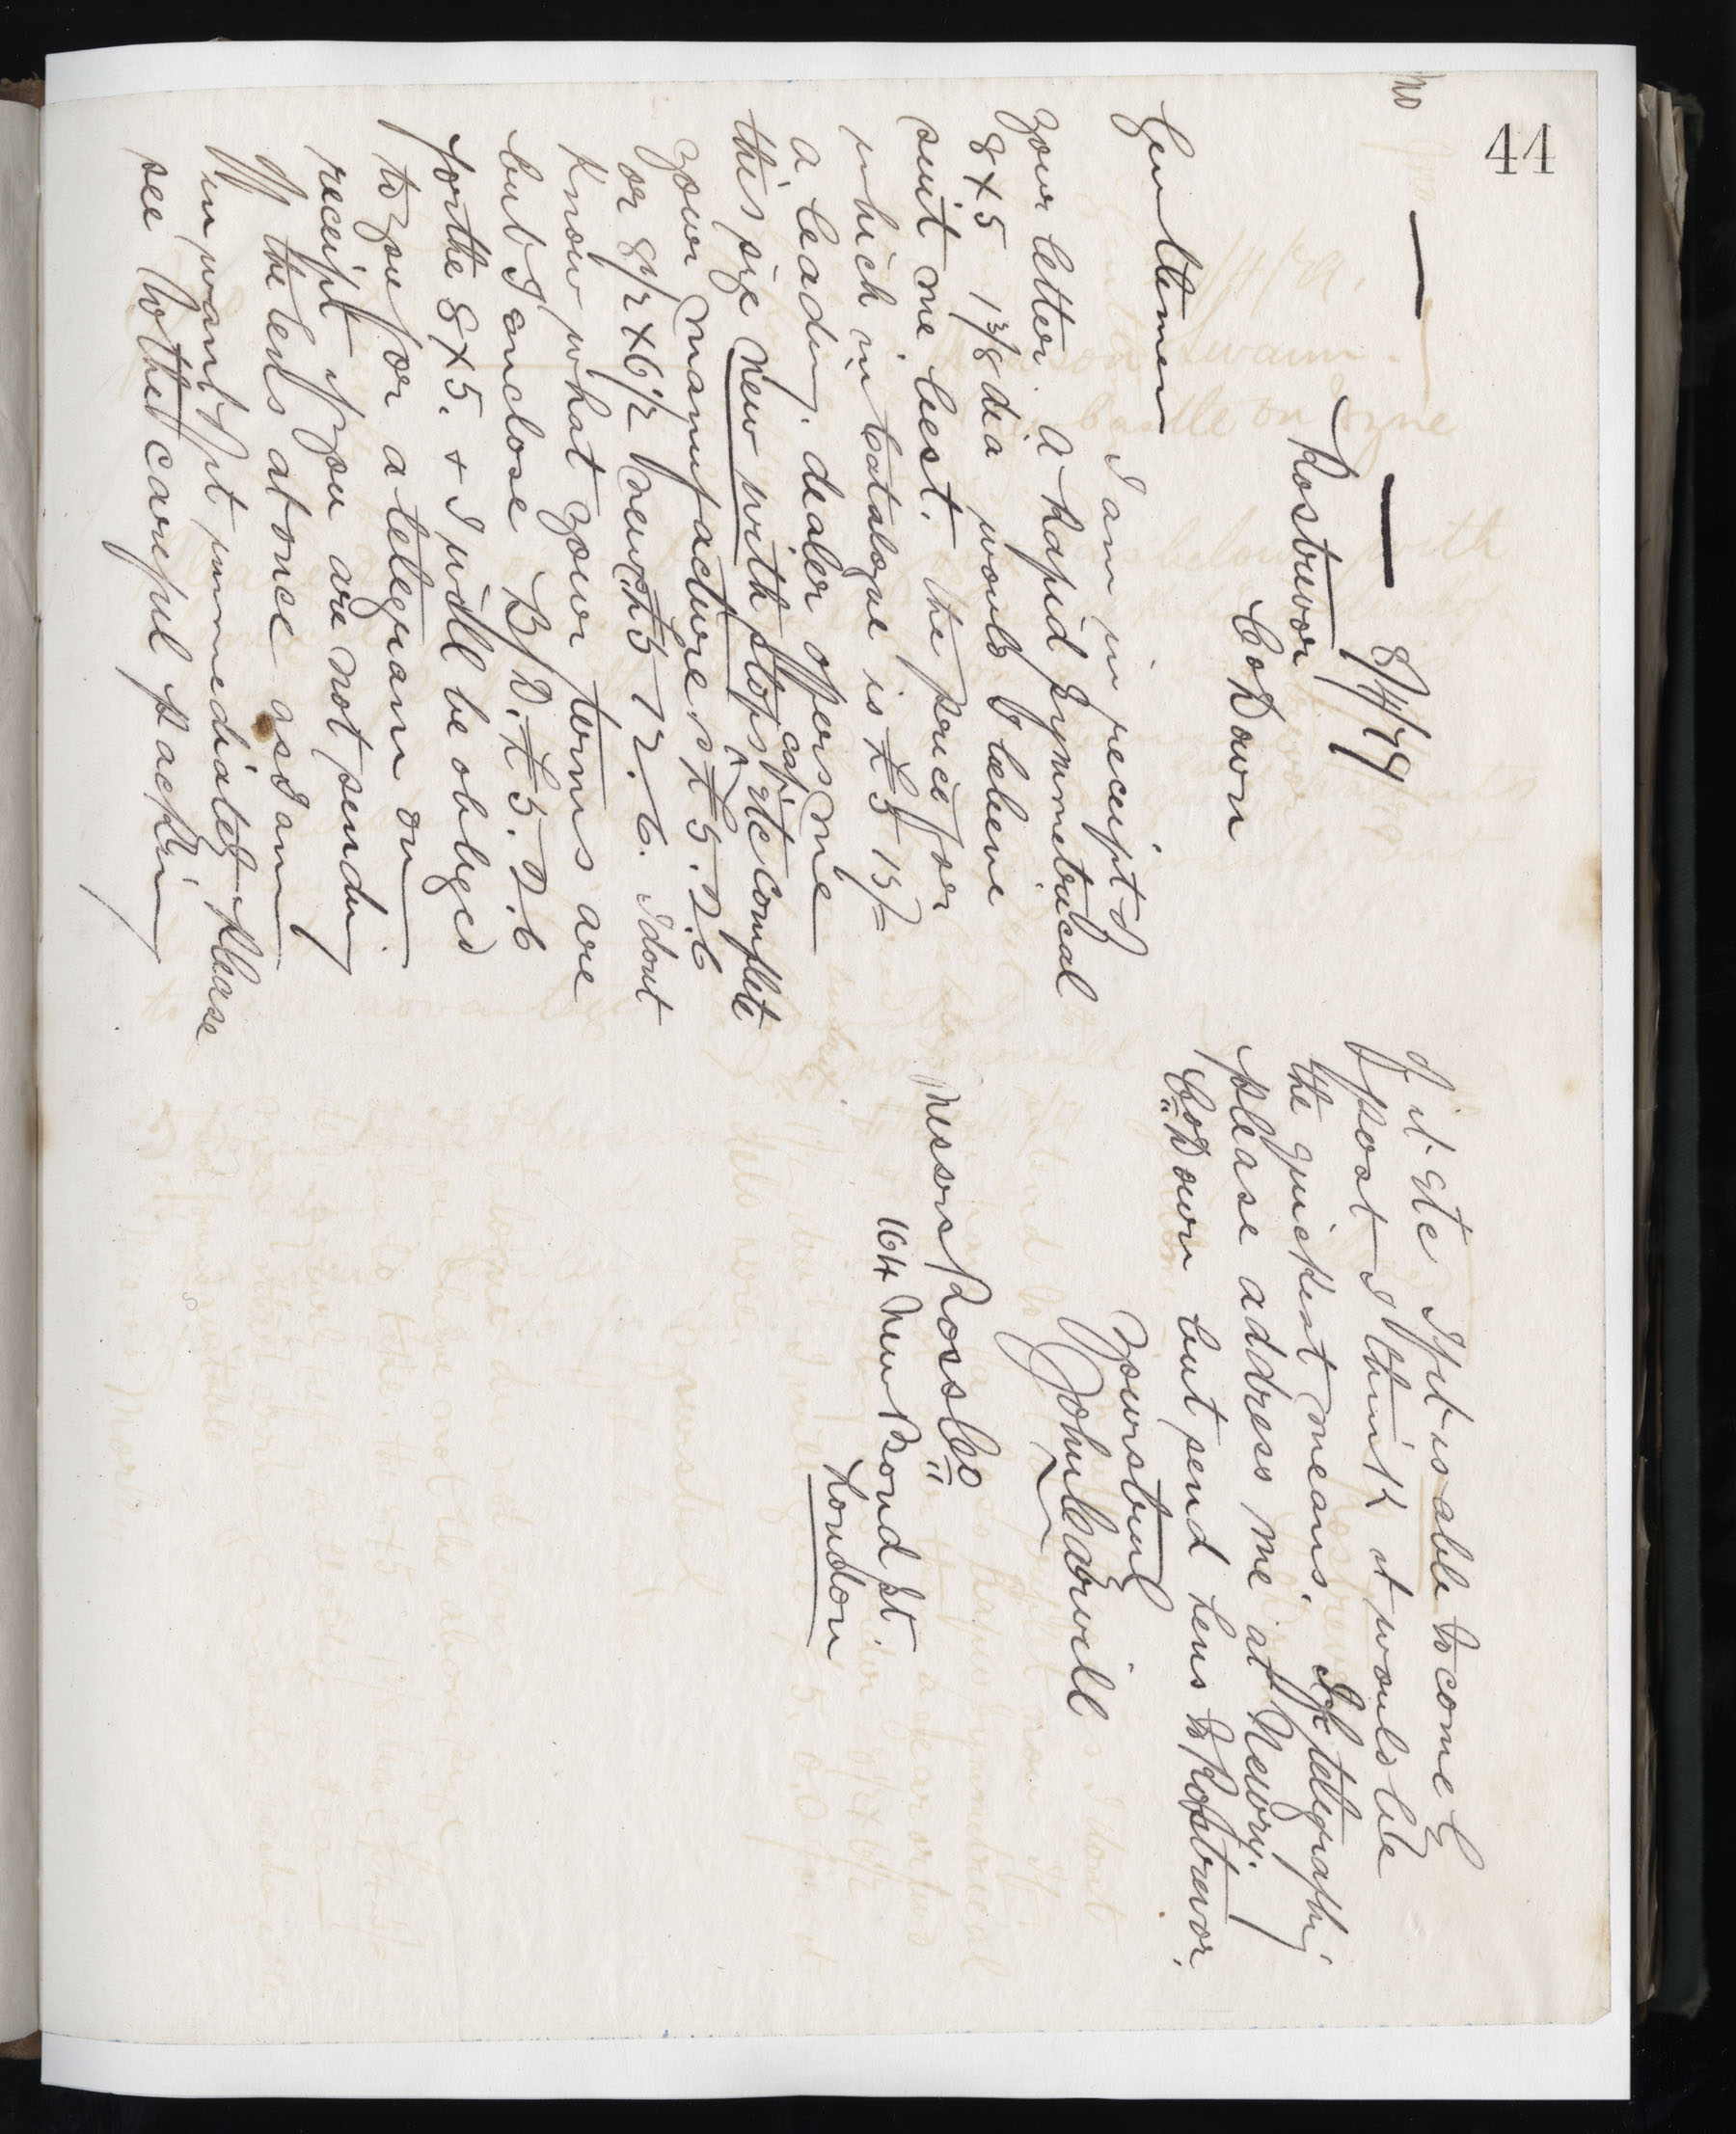 44
no
8/4/79
Rostrevor
Co Down
Gentlemen
I am in receipt of
your letter. A Rapid Symmetrical
8 x 5 1 3/8 dia would I believe
suit me best. The price for
which in Catalogue is £5 15/=
a leading dealer offers me
this size new with stops cap etc complete
your manufacture £5.2.6
or 8 1/2 x 6 1/2 £5 12.6. I dont
know what your terms are
but I enclose B/D. £5.2.6
for the 8 x 5. & I will be obliged
to you for a telegram on
receipt if you are not sending
off the lens at once as I am
in want of it immediately. Please
see to the careful packing
of it etc. If it is able to come by
post I think it would be
the quickest means. If telegraphing
please address me at Newry
Co Down but send lens to Rostrevor.
Yours truly
Messrs Ross & Co
164 New Bond St.
London